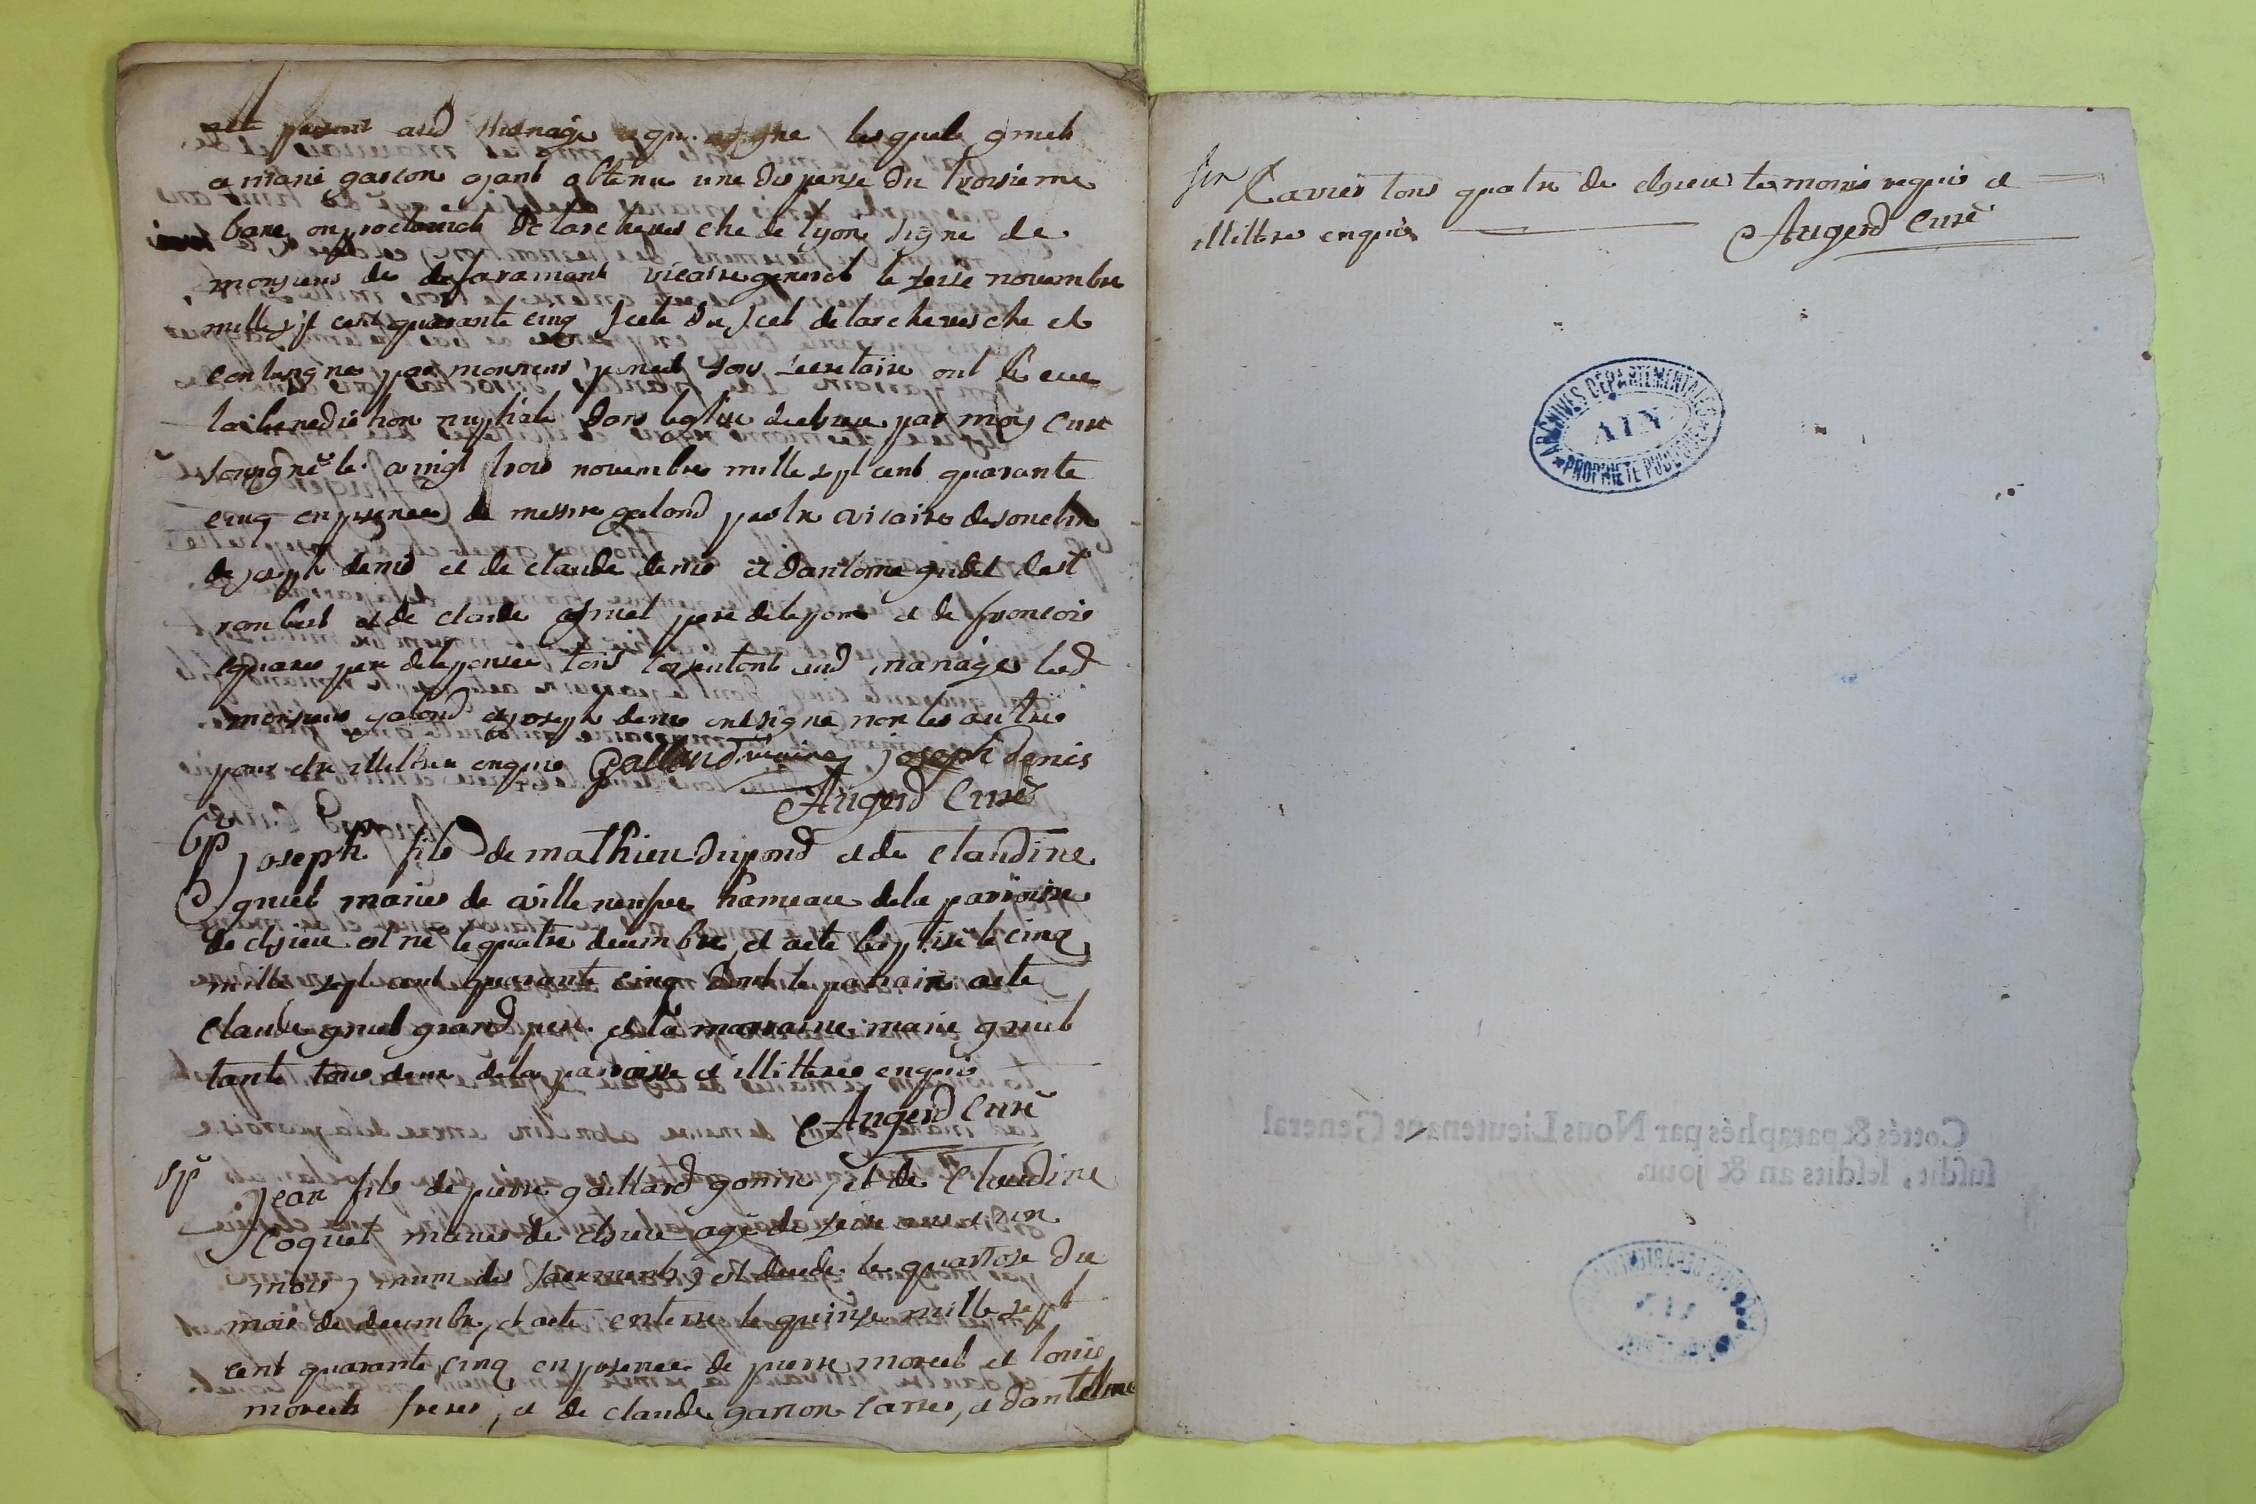 aud mariage lesquels gruel
a marié garcon ayant obtenu une dispense du troisieme
bans de larchevesché de lyon signé de
monsieur de vicaire general le seise novembre
mille sept cent quarante cinq scelé du scel de larchevesché et
par monsieur son secretaire ont receu
la benediction nuptiale dans leglise par moy curé
soussigné le vingt trois novembre mille sept cent quarante
cinq en presence de messire galond vicaire
de joseph denis et de claude denis et dantoine de st
rambert et de claude gruel pere de lepoux et de francois
pere de lepouse tous aud mariage led
monsieur galond et joseph denis ont signé non les autres
pour etre illittere enquis Galland vicaire joseph denis
Augerd Curé
bp joseph fils de mathieu dupond et de claudine
gruel mariés de villeneufve hameau de la parroisse
de est né le quatre decembre et a eté baptisé le cinq
mille sept cent quarante cinq dont le parrain a eté
claude gruel grand pere et la marraine marie gruel
tante tous deux de la paroisse et illitteres enquis
Augerd Curé
sp jean fils de pierre gaillard et de Claudine
Coquet mariés de agé de seise ans et un
mois, muni des sacrements, est decedé le quatorse du
mois de decembre, et a eté enterré le quinse mille sept
cent quarante cinq en presence de pierre morel et louis
morels freres, et de claude garson et dantelme
tous quatre de temoins requis et
illittres enquis Augerd Curé
ARCHIVES DEPARTEMENTALES
AIN
* PROPRIETE PUBLIQUE *
Cottés & paraphés par Nous Lieutenant General
susdit, lesdits an & jour.